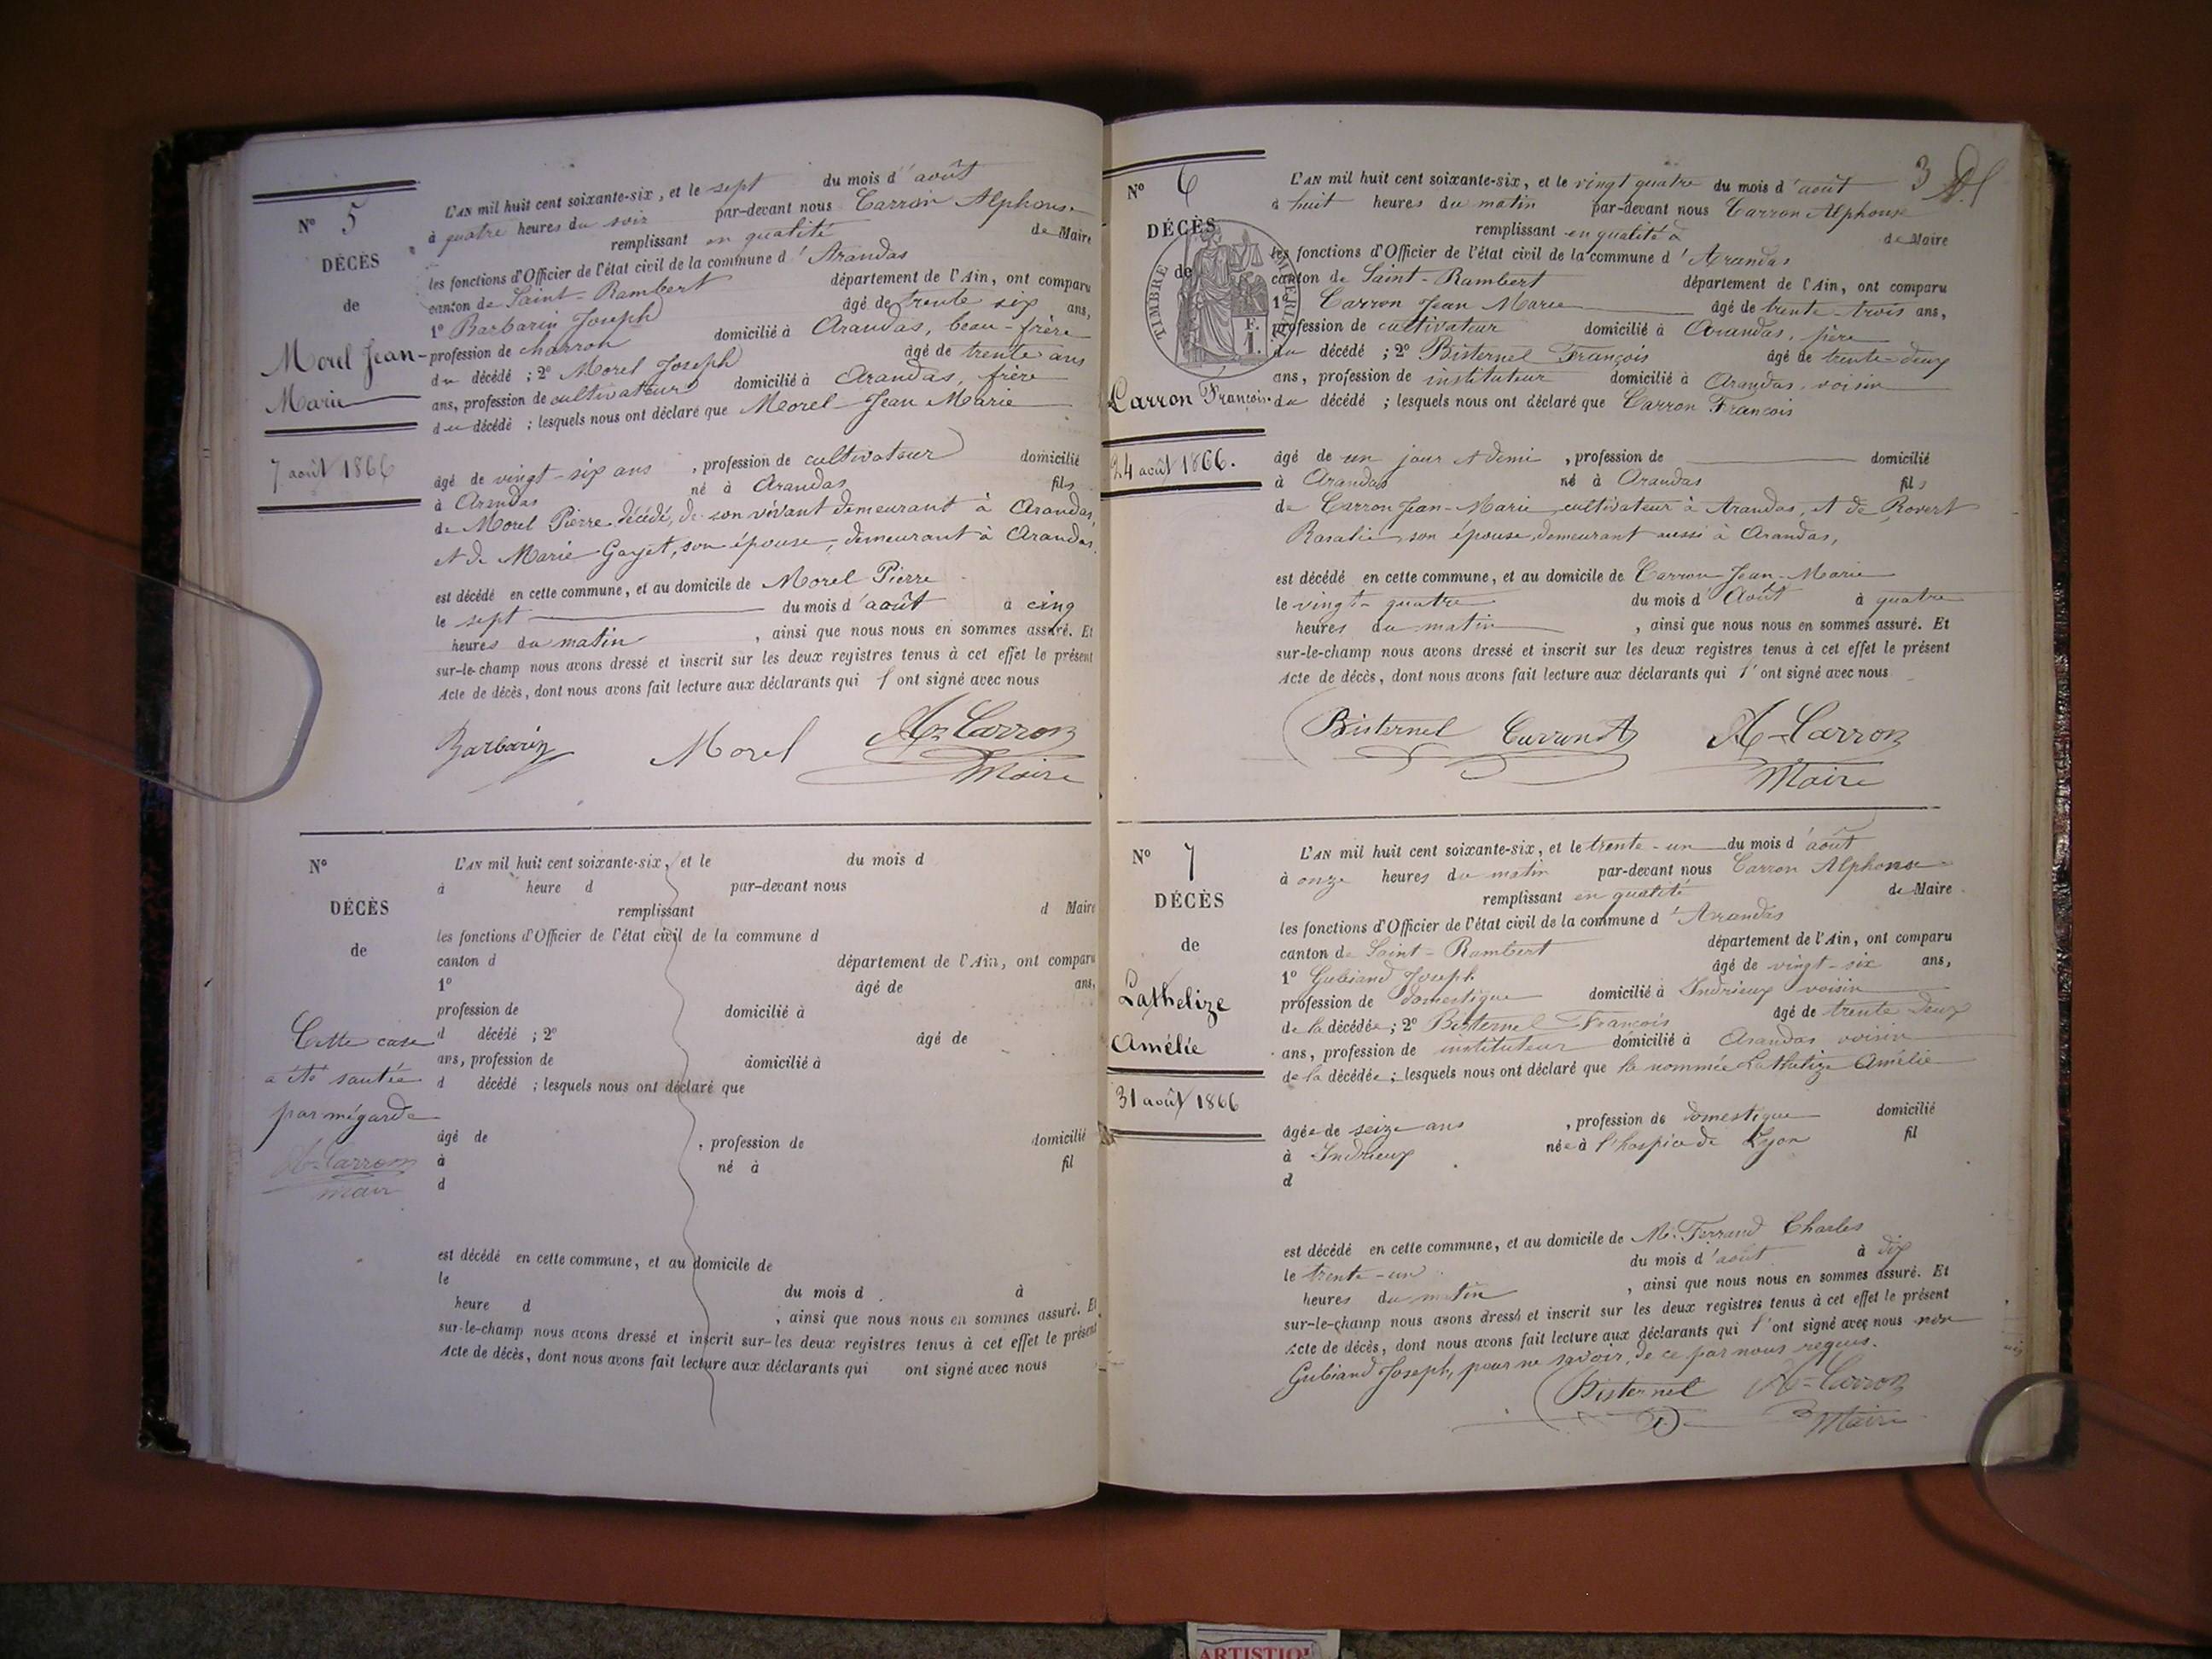 N° 5
DÉCÈS
de
Morel Jean-
Marie
7 août 1866
L'AN mil huit cent soixante-six, et le sept du mois d'août
à quatre heures du soir par-devant nous Carron Alphonse
remplissant en qualité de Maire
les fonctions d'Officier de l'état civil de la commune d'Arandas
canton de Saint-Rambert département de l'Ain, ont comparu
1° Barbarin Joseph âgé de trente six ans,
profession de charron domicilié à Arandas, beau-frère
du décédé ; 2° Morel Joseph âgé de trente ans
ans, profession de cultivateur domicilié à Arandas, frère
du décédé ; lesquels nous ont déclaré que Morel Jean Marie
âgé de vingt-six ans, profession de cultivateur domicilié
à Arandas né à Arandas fils
de Morel Pierre décédé, de son vivant demeurant à Arandas,
et de Marie Gayet, son épouse, demeurant à Arandas.
est décédé en cette commune, et au domicile de Morel Pierre
le sept du mois d'août à cinq
heures du matin, ainsi que nous nous en sommes assuré. Et
sur-le-champ nous avons dressé et inscrit sur les deux registres tenus à cet effet le présent
Acte de décès, dont nous avons fait lecture aux déclarants qui l'ont signé avec nous
Barbarin Morel A Carron
Maire
N°
DÉCÈS
de
Cette case
a été sautée
par mégarde
A Carron
maire
L'AN mil huit cent soixante-six, et le du mois d
à heure d par-devant nous
remplissant d Maire
les fonctions d'Officier de l'état civil de la commune d
canton d département de l'Ain, ont comparu
1° âgé de ans,
profession de domicilié à
d décédé ; 2° âgé de
ans, profession de domicilié à
d décédé ; lesquels nous ont déclaré que
âgé de , profession de domicilié
à né à fil
d
est décédé en cette commune, et au domicile de
le du mois d à
heure d , ainsi que nous nous en sommes assuré. Et
sur-le-champ nous avons dressé et inscrit sur les deux registres tenus à cet effet le présent
Acte de décès, dont nous avons fait lecture aux déclarants qui ont signé avec nous
3
N° 6
DÉCÈS
de
TIMBRE IMPÉRIAL
Carron François.
24 août 1866.
L'AN mil huit cent soixante-six, et le vingt quatre du mois d'août
à huit heures du matin par-devant nous Carron Alphonse
remplissant en qualité de Maire
les fonctions d'Officier de l'état civil de la commune d'Arandas
canton de Saint-Rambert département de l'Ain, ont comparu
1° Carron Jean Marie âgé de trente-trois ans,
profession de cultivateur domicilié à Arandas, père
du décédé ; 2° Bisternel François âgé de trente-deux
ans, profession de instituteur domicilié à Arandas, voisin
du décédé ; lesquels nous ont déclaré que Carron François
âgé de un jour et demi, profession de domicilié
à Arandas né à Arandas fils
de Carron Jean-Marie cultivateur à Arandas, et de Rovert
Rosalie son épouse, demeurant aussi à Arandas,
est décédé en cette commune, et au domicile de Carron Jean-Marie
le vingt-quatre du mois d'Août à quatre
heures du matin, ainsi que nous nous en sommes assuré. Et
sur-le-champ nous avons dressé et inscrit sur les deux registres tenus à cet effet le présent
Acte de décès, dont nous avons fait lecture aux déclarants qui l'ont signé avec nous
Bisternel Carron A-Carron
Maire
N° 7
DÉCÈS
de
Lathelize
Amélie
31 août 1866
L'AN mil huit cent soixante-six, et le trente-un du mois d'août
à onze heures du matin par-devant nous Carron Alphonse
remplissant en qualité de Maire
les fonctions d'Officier de l'état civil de la commune d'Arandas
canton de Saint-Rambert département de l'Ain, ont comparu
1° Gubiand Joseph âgé de vingt-six ans,
profession de domestique domicilié à Indrieux voisin
de la décédée ; 2° Bisternel François âgé de trente deux
ans, profession de instituteur domicilié à Arandas voisin
de la décédée ; lesquels nous ont déclaré que la nommée Lathelize Amélie
âgée de seize ans, profession de domestique domicilié
à Indrieux née à l'hospice de Lyon fil
d
est décédé en cette commune, et au domicile de Mr. Ferrand Charles
le trente-un du mois d'août à dix
heures du matin, ainsi que nous nous en sommes assuré. Et
sur-le-champ nous avons dressé et inscrit sur les deux registres tenus à cet effet le présent
Acte de décès, dont nous avons fait lecture aux déclarants qui l'ont signé avec nous non
Gubiand Joseph, pour ne savoir, de ce par nous requis.
Bisternel A-Carron
Maire